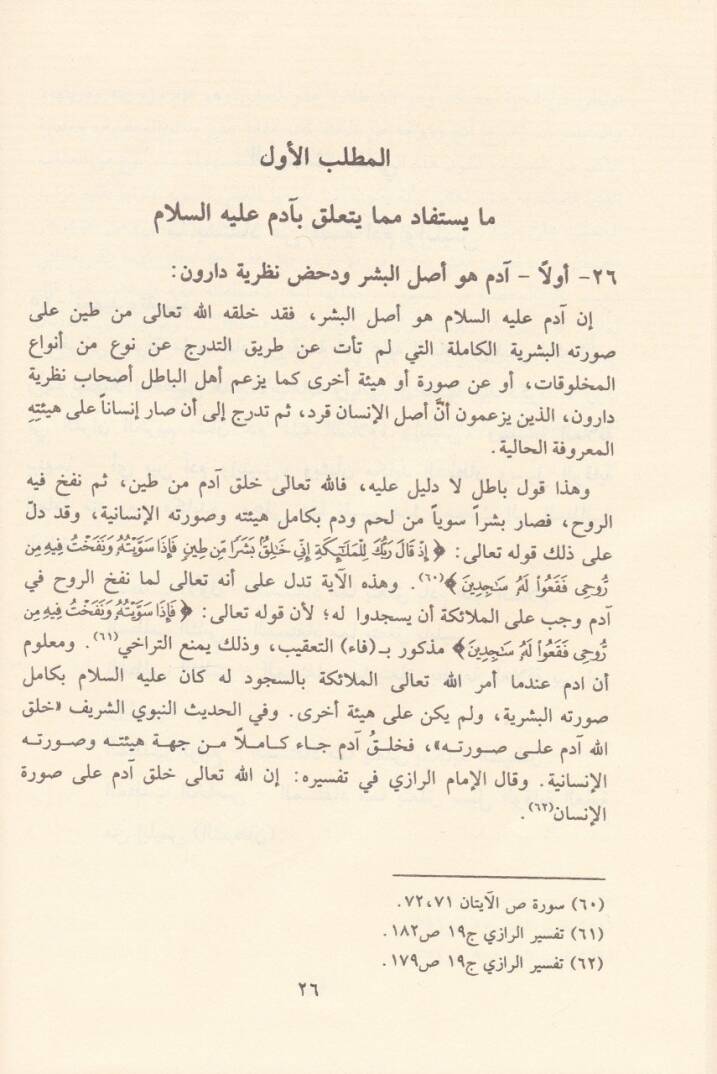 المطلب الأول
ما يستفاد مما يتعلق بآدم عليه السلام
٢٦- أولاً - آدم هو أصل البشر ودحض نظرية دارون:
إن آدم عليه السلام هو أصل البشر، فقد خلقه الله تعالى من طين على
صورته البشرية الكاملة التي لم تأت عن طريق التدرج عن نوع من أنواع
المخلوقات، أو عن صورة أو هيئة أخرى كما يزعم أهل الباطل أصحاب نظرية
دارون، الذين يزعمون أنَّ أصل الإنسان قرد، ثم تدرج إلى أن صار إنساناً على هيئتِهِ
المعروفة الحالية.
وهذا قول باطل لا دليل عليه، فالله تعالى خلق آدم من طين، ثم نفخ فيه
الروح، فصار بشراً سوياً من لحم ودم بكامل هيئته وصورته الإنسانية، وقد دلّ
على ذلك قوله تعالى: ﴿إِذْ قَالَ رَبُّكَ لِلْمَلَٰٓئِكَةِ إِنِّي خَٰلِقٌۢ بَشَرًا مِّن طِينٍ فَإِذَا سَوَّيْتُهُۥ وَنَفَخْتُ فِيهِ مِن
رُّوحِي فَقَعُوا۟ لَهُۥ سَٰجِدِينَ﴾(٦٠). وهذه الآية تدل على أنه تعالى لما نفخ الروح في
آدم وجب على الملائكة أن يسجدوا له؛ لأن قوله تعالى: ﴿فَإِذَا سَوَّيْتُهُۥ وَنَفَخْتُ فِيهِ مِن
رُّوحِي فَقَعُوا۟ لَهُۥ سَٰجِدِينَ﴾ مذكور بـ(فاء) التعقيب، وذلك يمنع التراخي(٦١). ومعلوم
أن ادم عندما أمر الله تعالى الملائكة بالسجود له كان عليه السلام بكامل
صورته البشرية، ولم يكن على هيئة أخرى. وفي الحديث النبوي الشريف «خلق
الله آدم على صورته»، فخلقُ آدم جاء كاملاً من جهة هيئته وصورته
الإنسانية. وقال الإمام الرازي في تفسيره: إن الله تعالى خلق آدم على صورة
الإنسان(٦٢).
(٦٠) سورة ص الآيتان ٧١،٧٢.
(٦١) تفسير الرازي ج١٩ ص١٨٢.
(٦٢) تفسير الرازي ج١٩ ص١٧٩.
٢٦